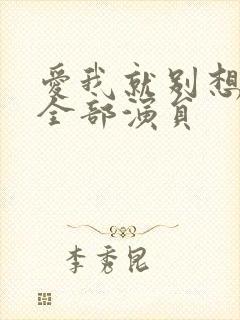 愛我就别想
全部演員
李秀昆